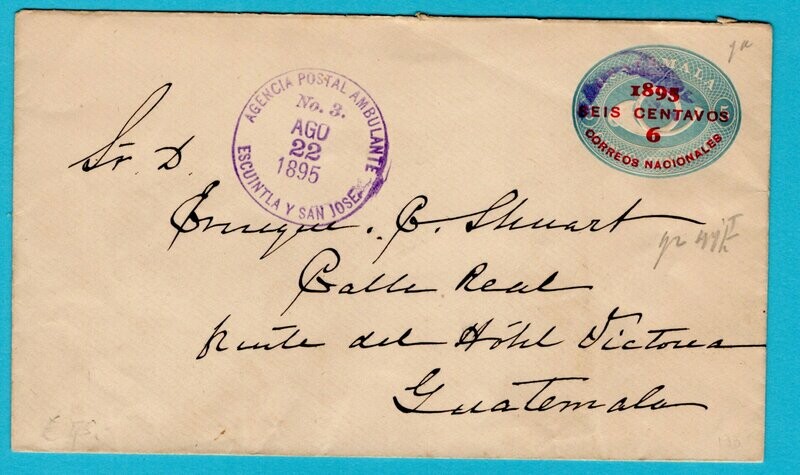 AGENCIA POSTAL AMBULANTE
No. 3.
AGO
22
1895
ESCUINTLA Y SAN JOSE
GUATEMALA
1895
SEIS CENTAVOS
6
CORREOS NACIONALES
5
Sr. D.
Enrique. C. Stuart
Calle Real
frente del Hótel Victoria
Guatemala